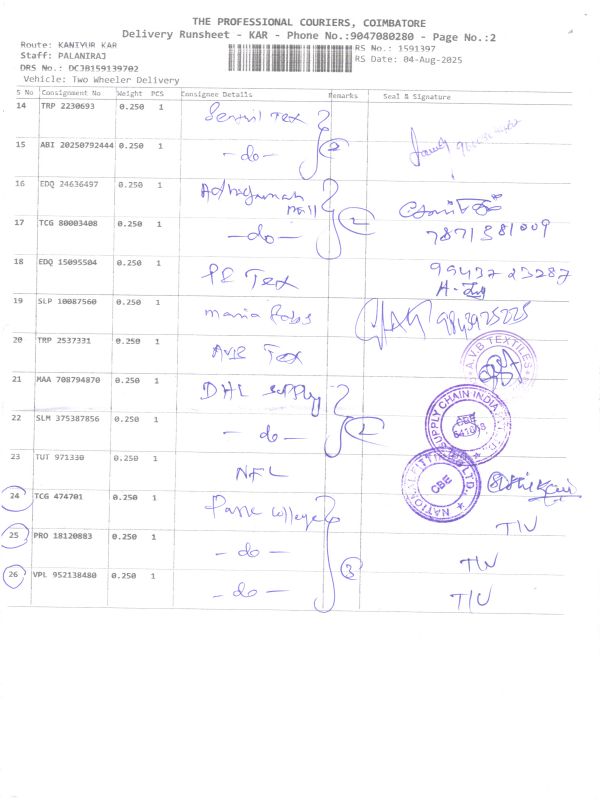 THE PROFESSIONAL COURIERS, COIMBATORE
Delivery Runsheet - KAR - Phone No.:9047080280 - Page No.:2
Route: KANIYUR KAR
RS No.: 1591397
Staff: PALANIRAJ
RS Date: 04-Aug-2025
DRS No.: DCJB159139702
Vehicle: Two Wheeler Delivery
S No Consignment No Weight PCS Consignee Details Remarks Seal & Signature
14 TRP 2230693 0.250 1 Tex
15 ABI 20250792444 0.250 1 - do - 2
16 EDQ 24636497 0.250 1 Mall 2
17 TCG 80003408 0.250 1 - do - 7871381009
18 EDQ 15095504 0.250 1 PE Tex 99437 23287
19 SLP 10087560 0.250 1 maria fabs 9843925225
20 TRP 2537331 0.250 1 AVB Tex A.V.B TEXTILES
21 MAA 708794870 0.250 1 DHL supply SUPPLY CHAIN INDIA
22 SLM 375387856 0.250 1 - do - 2 CBE
23 TUT 971330 0.250 1 NFL NATIONAL FITTINGS LTD. CBE
24 TCG 474701 0.250 1 college T/U
25 PRO 18120883 0.250 1 - do - 3 T/U
26 VPL 952138480 0.250 1 - do - T/U